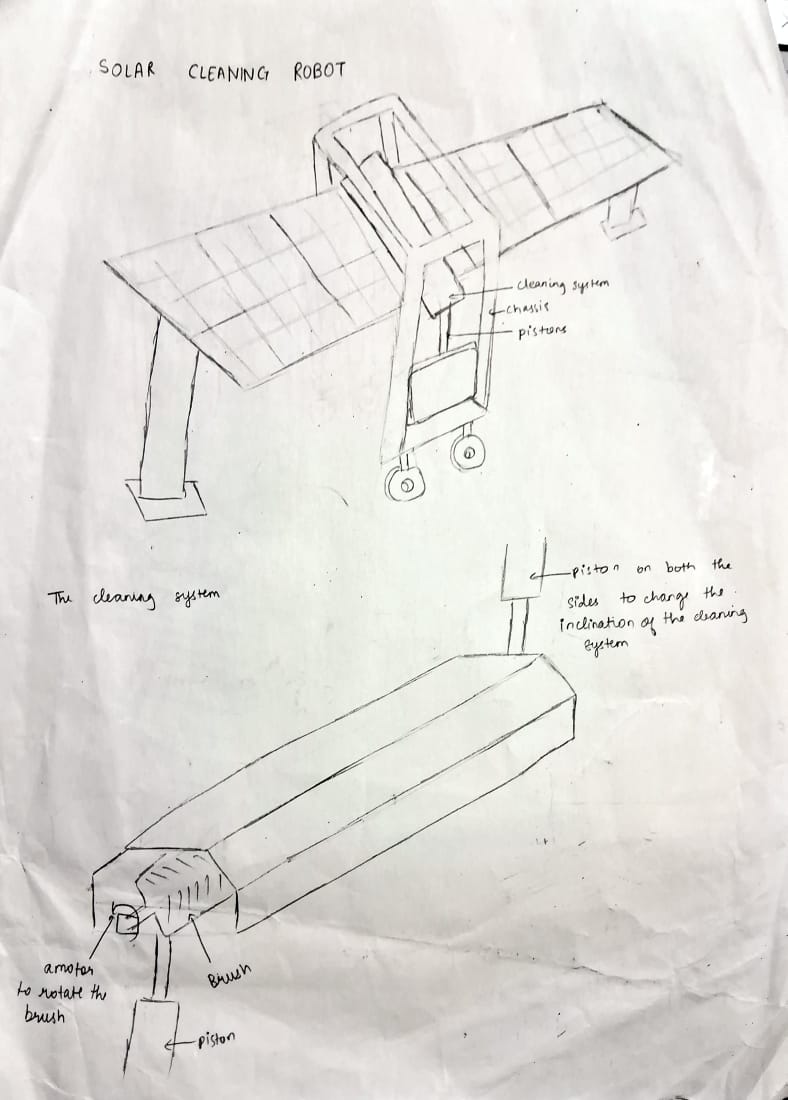 SOLAR CLEANING ROBOT
cleaning system
chassis
pistons
The cleaning system
piston on both the
sides to change the
inclination of the cleaning
system
a motor
to rotate the
brush
Brush
piston